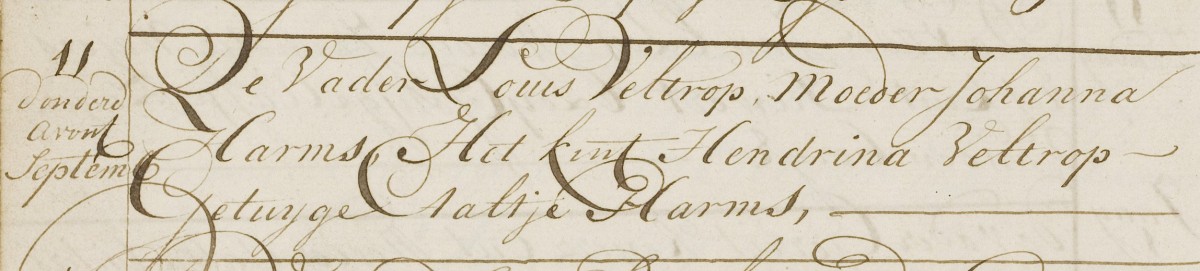 11
donderd
avont
Septem
De Vader Louis Veltrop, Moeder Johanna
Harms, Het kint Hendrina Veltrop
Getuyge Aaltje Harms,